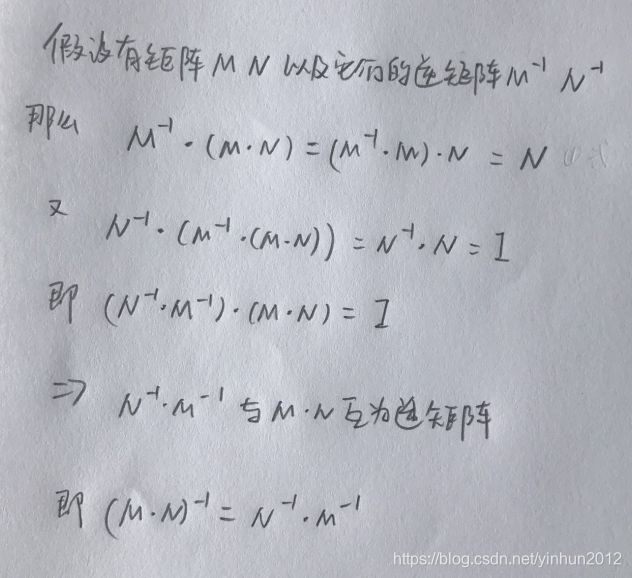 假设有矩阵 M N 以及它们的逆矩阵 M⁻¹ N⁻¹
那么 M⁻¹·(M·N) = (M⁻¹·M)·N = N
又 N⁻¹·(M⁻¹·(M·N)) = N⁻¹·N = I
即 (N⁻¹·M⁻¹)·(M·N) = I
=> N⁻¹·M⁻¹ 与 M·N 互为逆矩阵
即 (M·N)⁻¹ = N⁻¹·M⁻¹
https://blog.csdn.net/yinhun2012